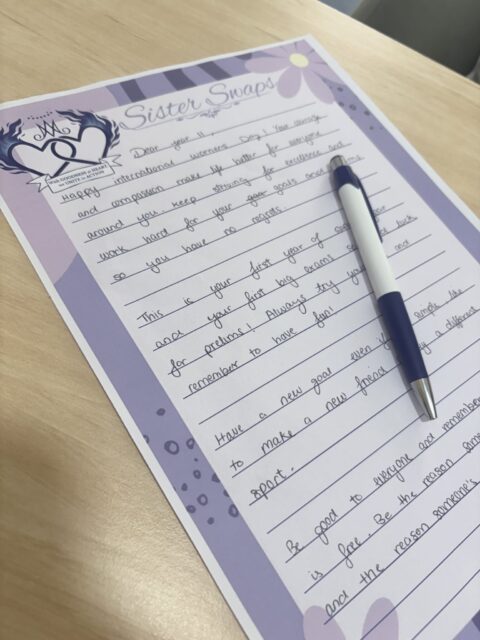 Sister Swaps
With GOODNESS of HEART
we UNITE in ACTION
Dear year 11,
Happy international womens Day! Your courage
and compassion make life better for everyone
around you. Keep striving for excellence and
work hard for your goals and
so you have no regrets.
This is your first year of
and your first big exams
for prelims! Always try your and
remember to have fun!
Have a new goal even simple like
to make a new friend a different
sport.
Be good to everyone and remember
is free. Be the reason
and the reason someone's